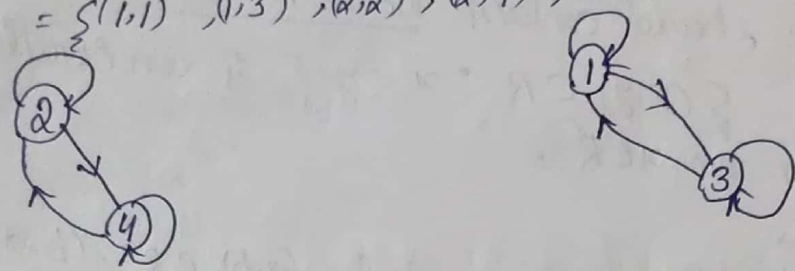 = {(1,1) ,(1,3) ,(2,2) ,(2,4) ,
1
2
3
4